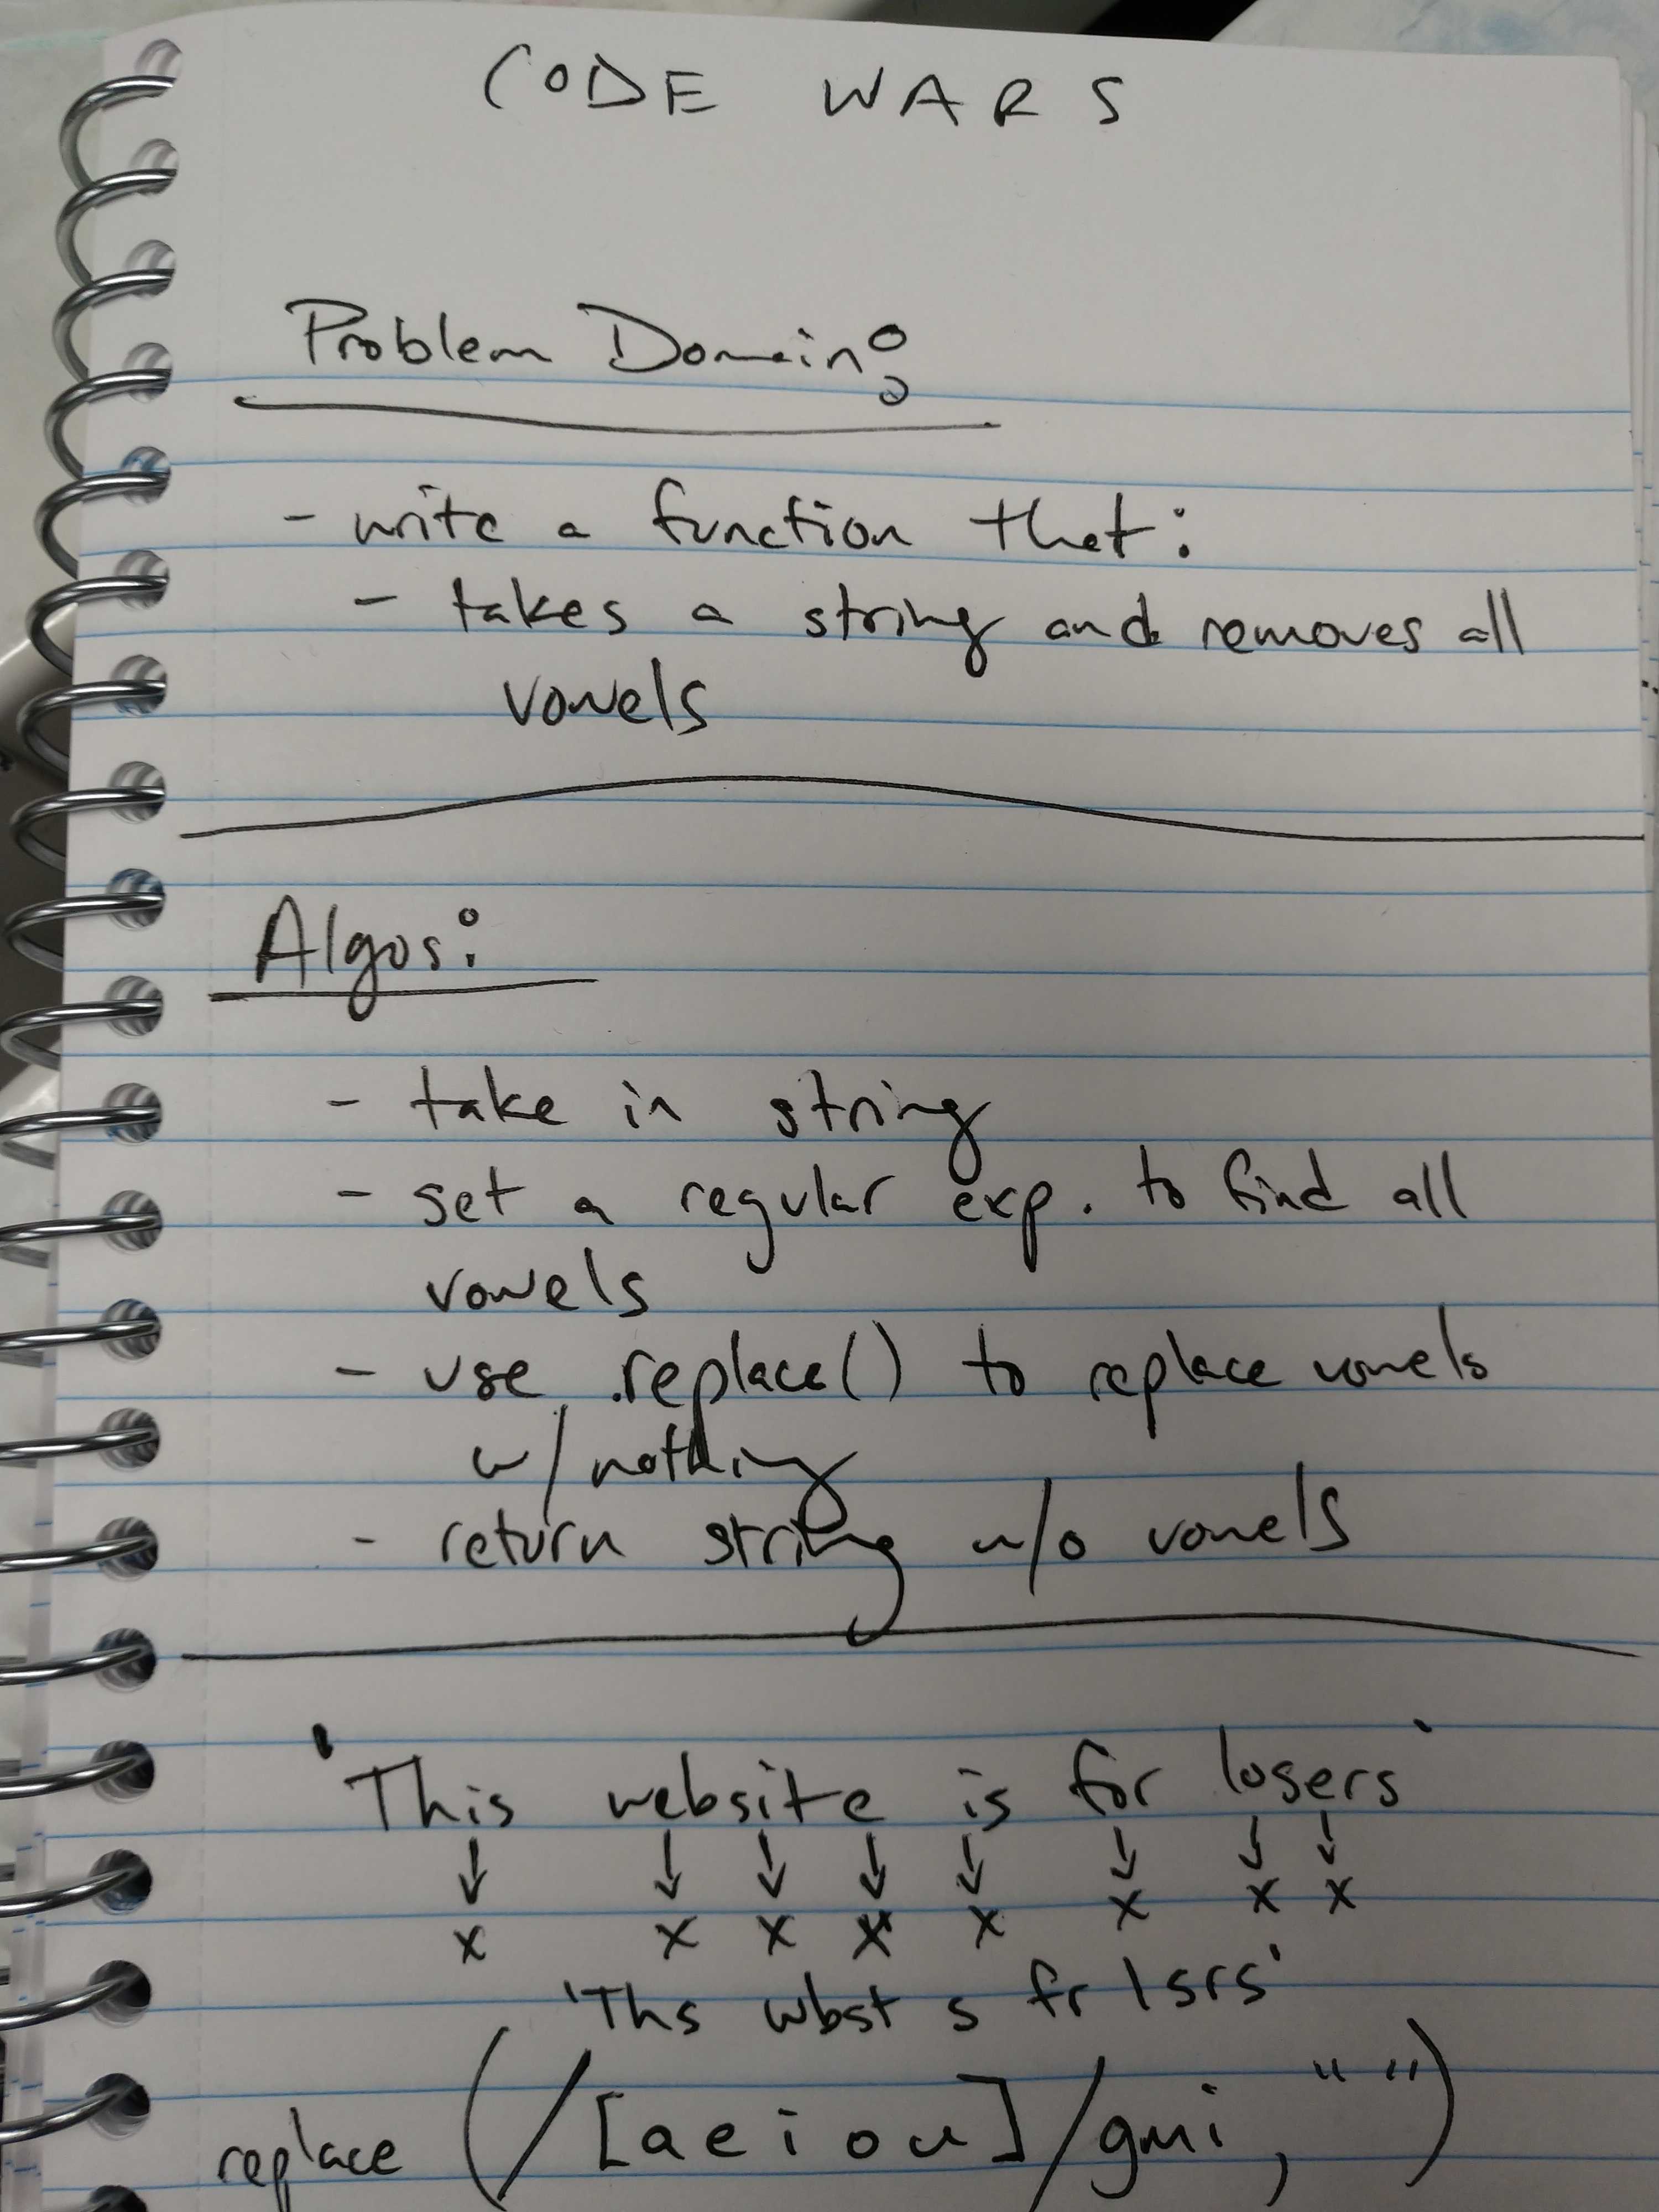 CODE WARS
Problem Domain:
- write a function that:
- takes a string and removes all
vowels
Algos:
- take in string
- set a regular exp. to find all
vowels
- use .replace() to replace vowels
w/ nothing
- return string w/o vowels
'This website is for losers'
↓ ↓ ↓ ↓ ↓ ↓ ↓ ↓
x x x x x x x x
'Ths wbst s fr lsrs'
replace (/[aeiou]/gmi, "")